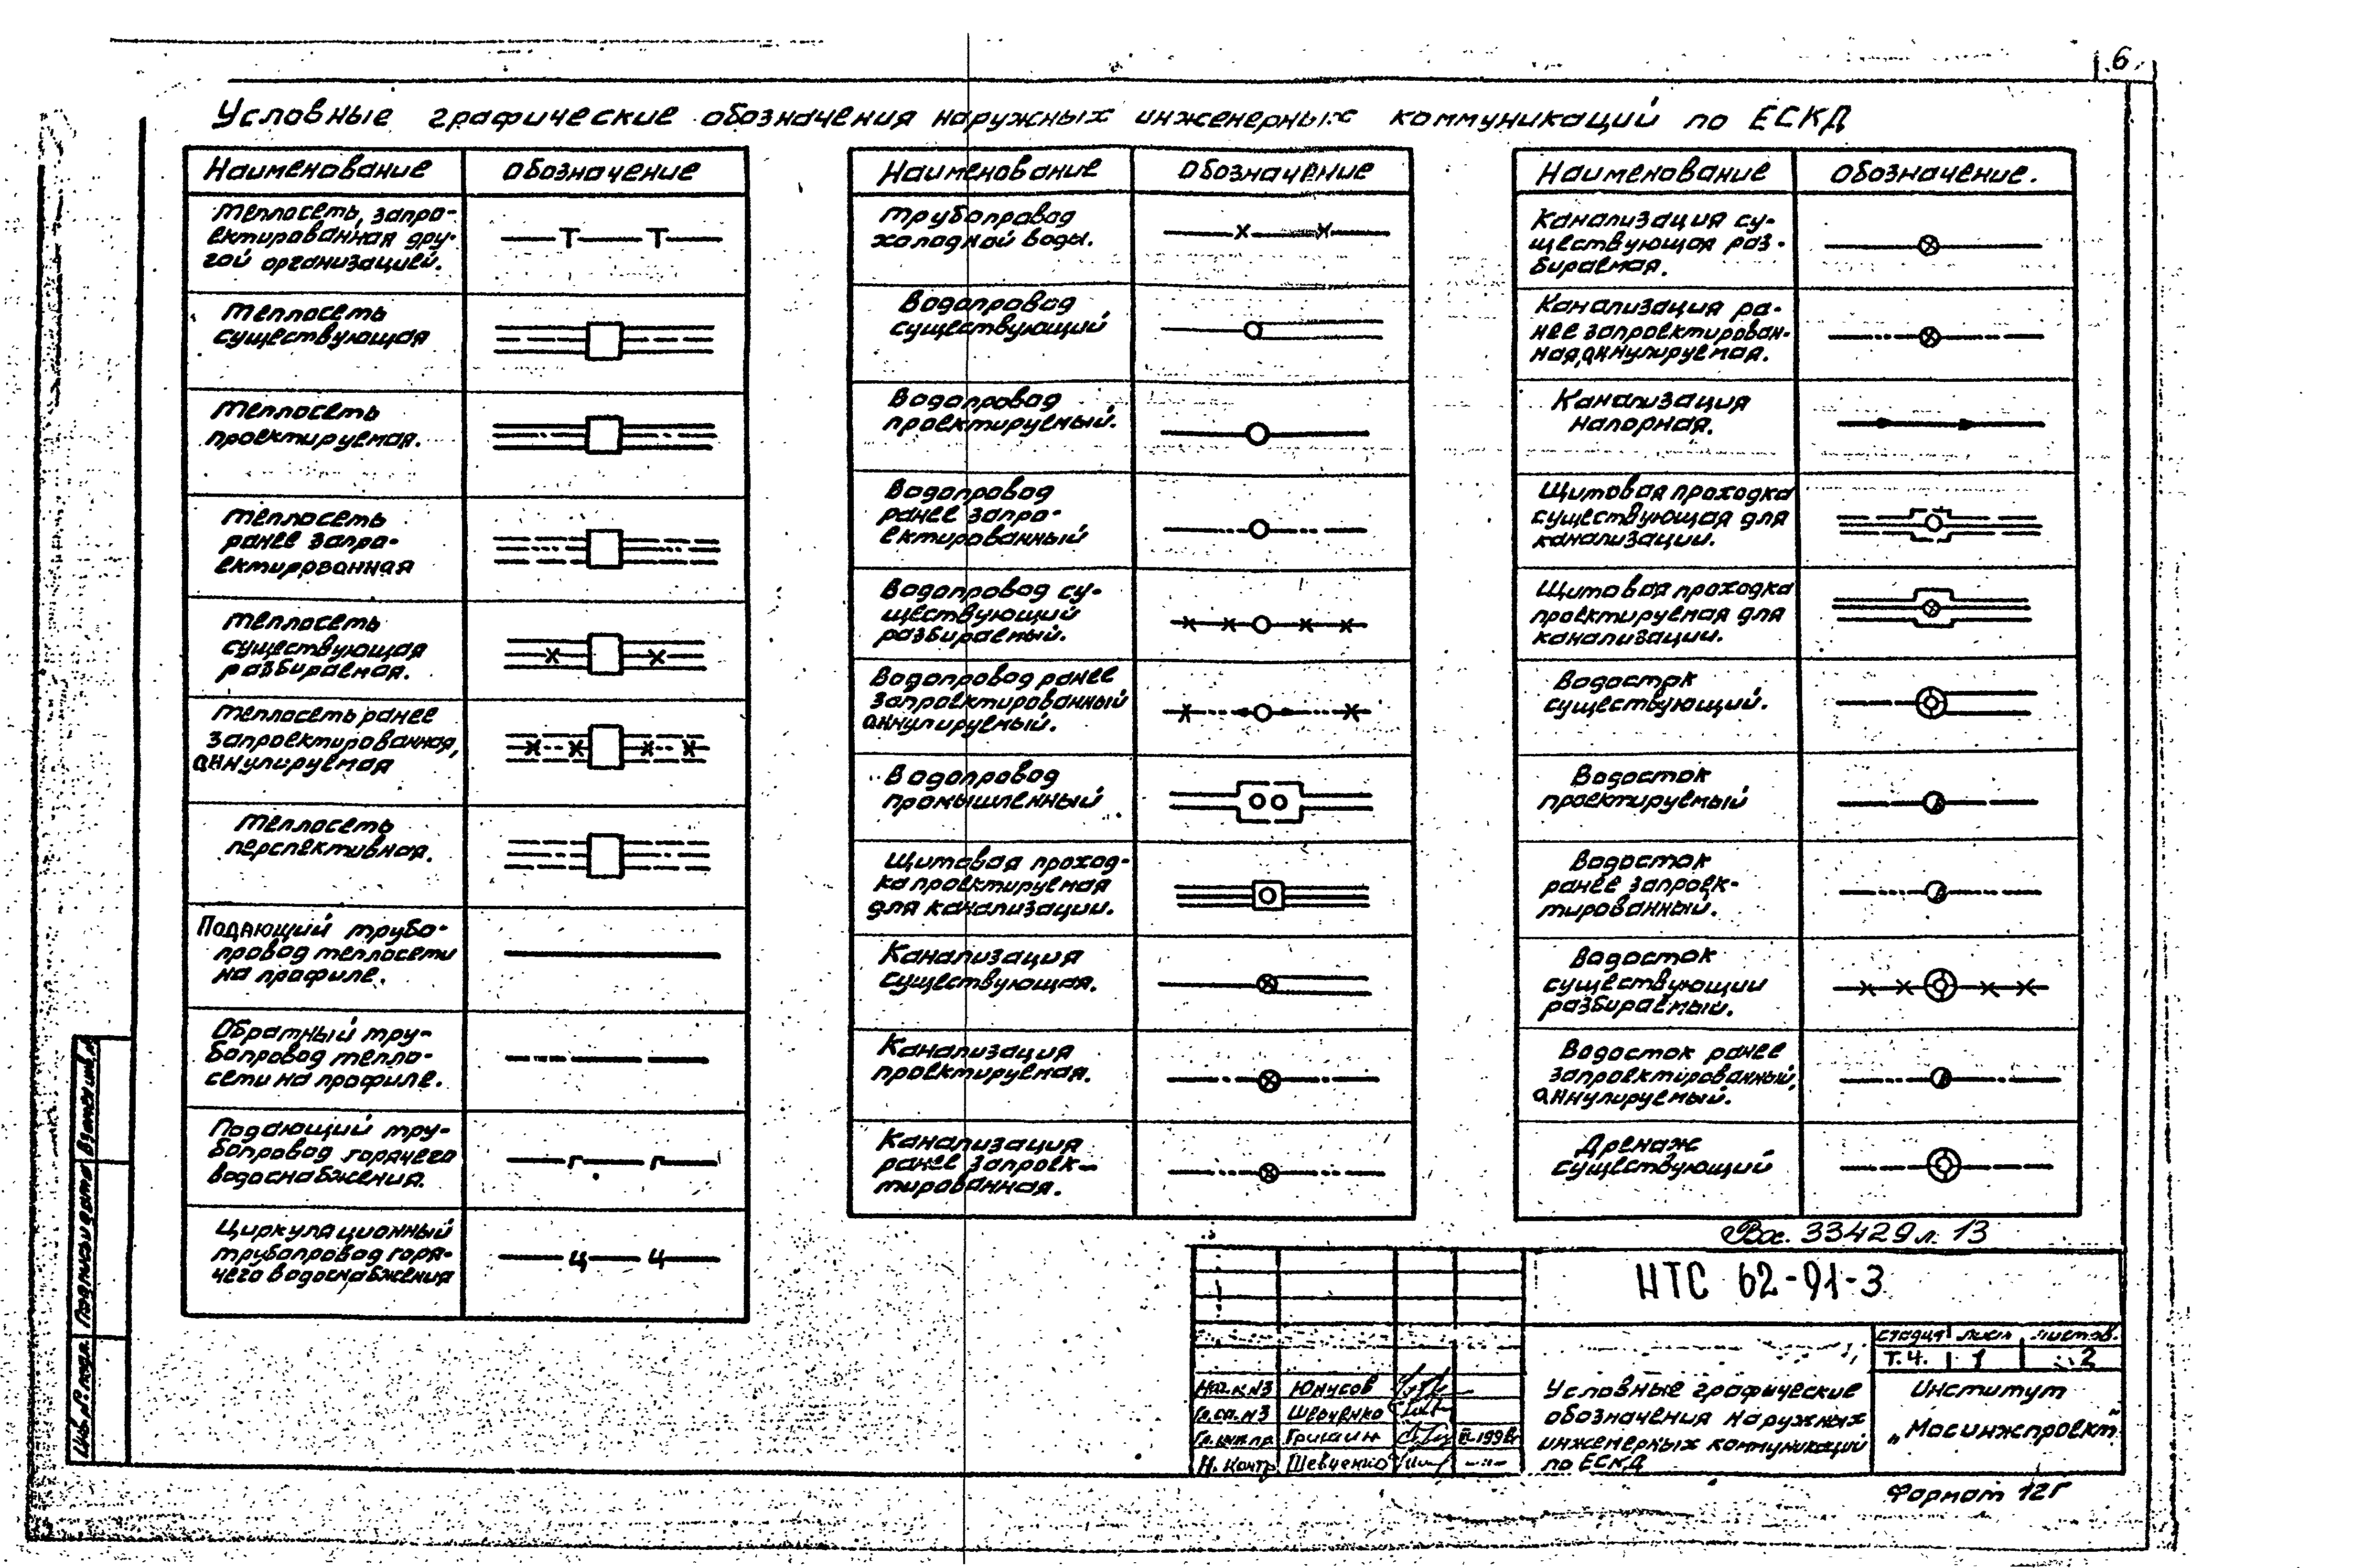 6
Условные графические обозначения наружных инженерных коммуникаций по ЕСКД
Наименование
Обозначение
Теплосеть, запро-
ектированная дру-
гой организацией.
Т Т
Теплосеть
существующая
Теплосеть
проектируемая.
Теплосеть
ранее запро-
ектированная
Теплосеть
существующая
разбираемая.
Теплосеть ранее
запроектированная,
аннулируемая
Теплосеть
перспективная.
Подающий трубо-
провод теплосети
на профиле.
Обратный тру-
бопровод тепло-
сети на профиле.
Подающий тру-
бопровод горячего
водоснабжения.
Г Г
Циркуляционный
трубопровод горя-
чего водоснабжения
Ц Ц
Наименование
Обозначение
Трубопровод
холодной воды.
х х
Водопровод
существующий
Водопровод
проектируемый.
Водопровод
ранее запро-
ектированный
Водопровод су-
ществующий
разбираемый.
Водопровод ранее
запроектированный
аннулируемый.
Водопровод
промышленный
Щитовая проход-
ка проектируемая
для канализации.
Канализация
существующая.
Канализация
проектируемая.
Канализация
ранее запроек-
тированная.
Наименование
Обозначение.
Канализация су-
ществующая раз-
бираемая.
Канализация ра-
нее запроектирован-
ная, аннулируемая.
Канализация
напорная.
Щитовая проходка
существующая для
канализации.
Щитовая проходка
проектируемая для
канализации.
Водосток
существующий.
Водосток
проектируемый
Водосток
ранее запроек-
тированный.
Водосток
существующий
разбираемый.
Водосток ранее
запроектированный,
аннулируемый.
Дренаж
существующий
33429 л. 13
НТС 62-91-3
стадия лист листов
Т.Ч. 1 2
Юнусов
Шевченко
Гришин
Н. контр Шевченко
Условные графические
обозначения наружных
инженерных коммуникаций
по ЕСКД
Институт
„Мосинжпроект"
Формат 12Г
Инв. № подл. Подпись и дата Взамен инв. №